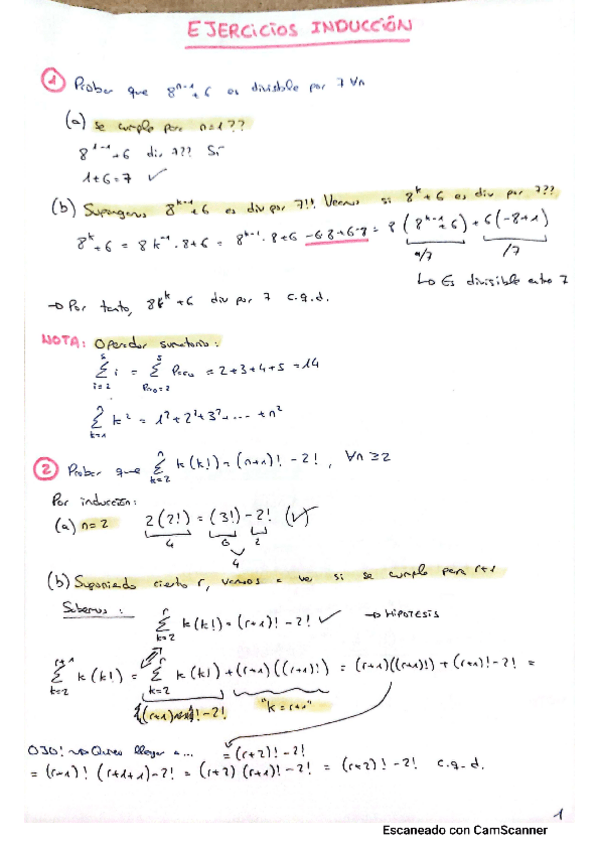 EJERCICIOS INDUCCIÓN
① Probar que 8^{n-1}+6 es divisible por 7 ∀n
(a) Se cumple para n=1??
8^{1-1}+6 div 7?? Sí
1+6=7 ✓
(b) Supongamos 8^{k-1}+6 es div por 7!! Veamos si 8^k+6 es div por 7??
8^k+6 = 8^{k-1}·8+6 = 8^{k-1}·8+6-6·8+6·8 = 8(8^{k-1}+6)+6(-8+1)
/7 /7
↳ Es divisible entre 7
→ Por tanto, 8^k+6 div por 7 c.q.d.
NOTA: Operador sumatorio:
∑_{i=2}^{5} i = ∑_{Perro=2}^{5} Perro = 2+3+4+5 = 14
∑_{k=1}^{n} k² = 1²+2²+3²+...+n²
② Probar que ∑_{k=2}^{n} k(k!) = (n+1)! - 2!, ∀n≥2
Por inducción:
(a) n=2 2(2!) = (3!) - 2! (✓)
4 6 2
4
(b) Suponiendo cierto r, vamos a ver si se cumple para r+1
Sabemos: ∑_{k=2}^{r} k(k!) = (r+1)! - 2! ✓ → HIPÓTESIS
∑_{k=2}^{r+1} k(k!) = ∑_{k=2}^{r} k(k!) + (r+1)((r+1)!) = (r+1)((r+1)!) + (r+1)! - 2! =
(r+1)! - 2! "k=r+1"
OJO! → Quiero llegar a... = (r+2)! - 2!
= (r+1)! (r+1+1) - 2! = (r+2)(r+1)! - 2! = (r+2)! - 2! c.q.d.
1
Escaneado con CamScanner